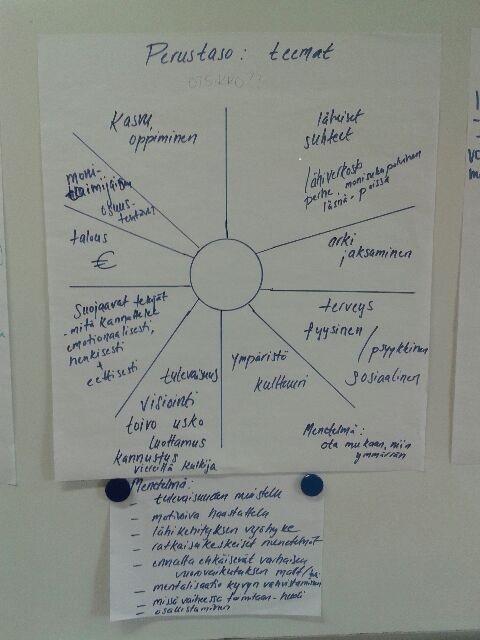 Perustaso: teemat
OTSIKKO??
Kasvu,
oppiminen
läheiset
suhteet
lähiverkosto
perhe, monisukupolvinen
läsnä - poissa
moni-
toimijainen
osuus-
talous
€
arki
jaksaminen
terveys
fyysinen
/ psyykkinen
sosiaalinen
Suojaavat tekijät
- mitä kannattelee
emotionaalisesti,
henkisesti
+
eettisesti
ympäristö
kulttuuri
tulevaisuus
visiointi
toivo usko
luottamus
kannustus
vierellä kulkija
Menetelmä:
ota mukaan, niin
ymmärrän
Menetelmä:
- tulevaisuuden muistelu
- motivoiva haastattelu
- lähikehityksen vyöhyke
- ratkaisukeskeiset menetelmät
- ennalta ehkäisevät varhaisen
vuorovaikutuksen
- mentalisaatio kyvyn vahvistaminen
- missä vaiheessa toimitaan - huoli
- osallistaminen